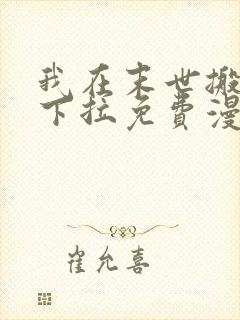 我在末世搬
下拉免費漫
崔允喜